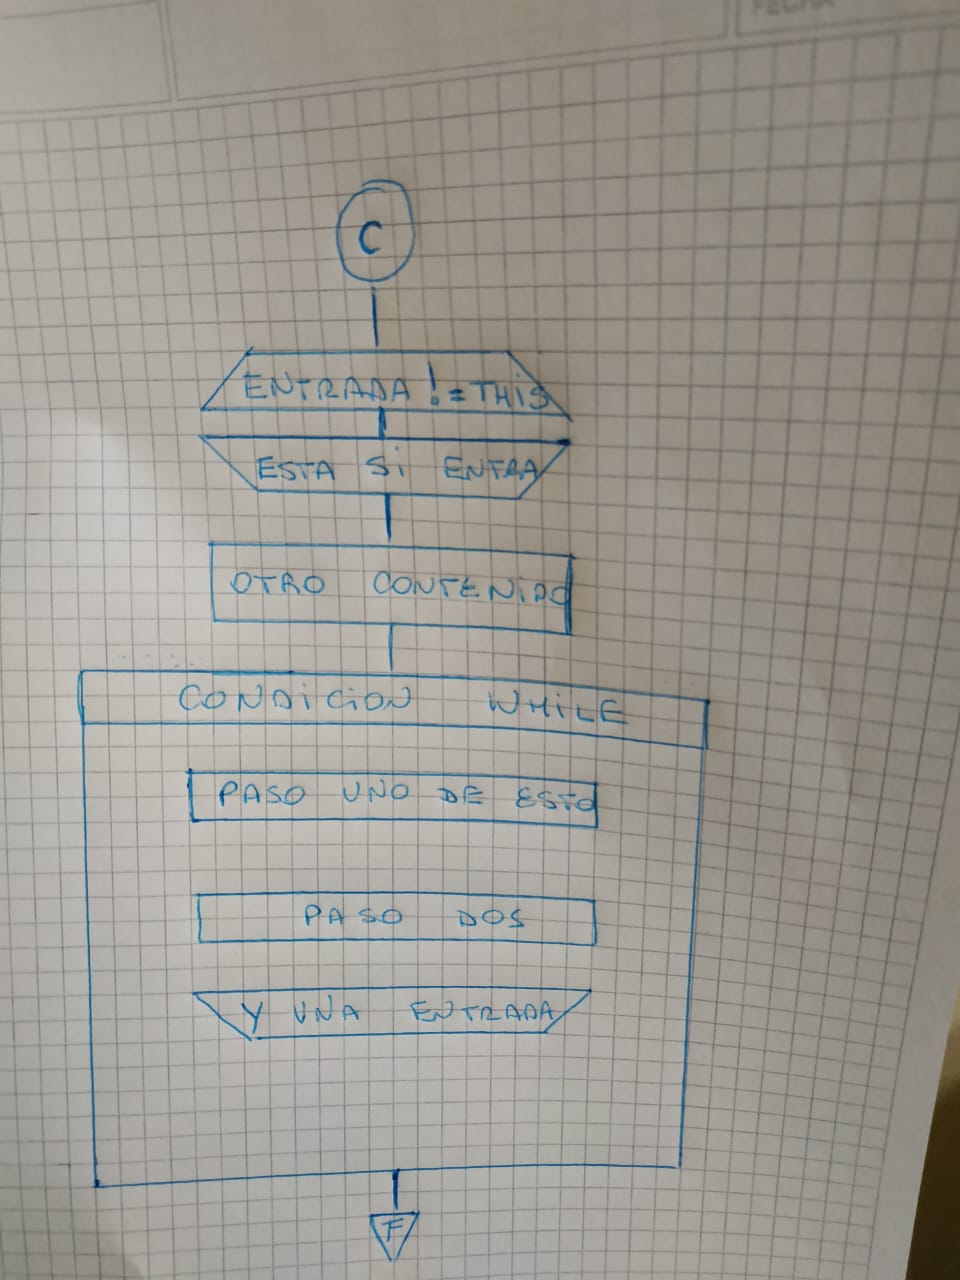 FECHA
C
ENTRADA != THiS
ESTA Si ENTRA
OTRO CONTENiDO
CONDiCiON WHiLE
PASO UNO DE ESTO
PASO DOS
Y UNA ENTRADA
F